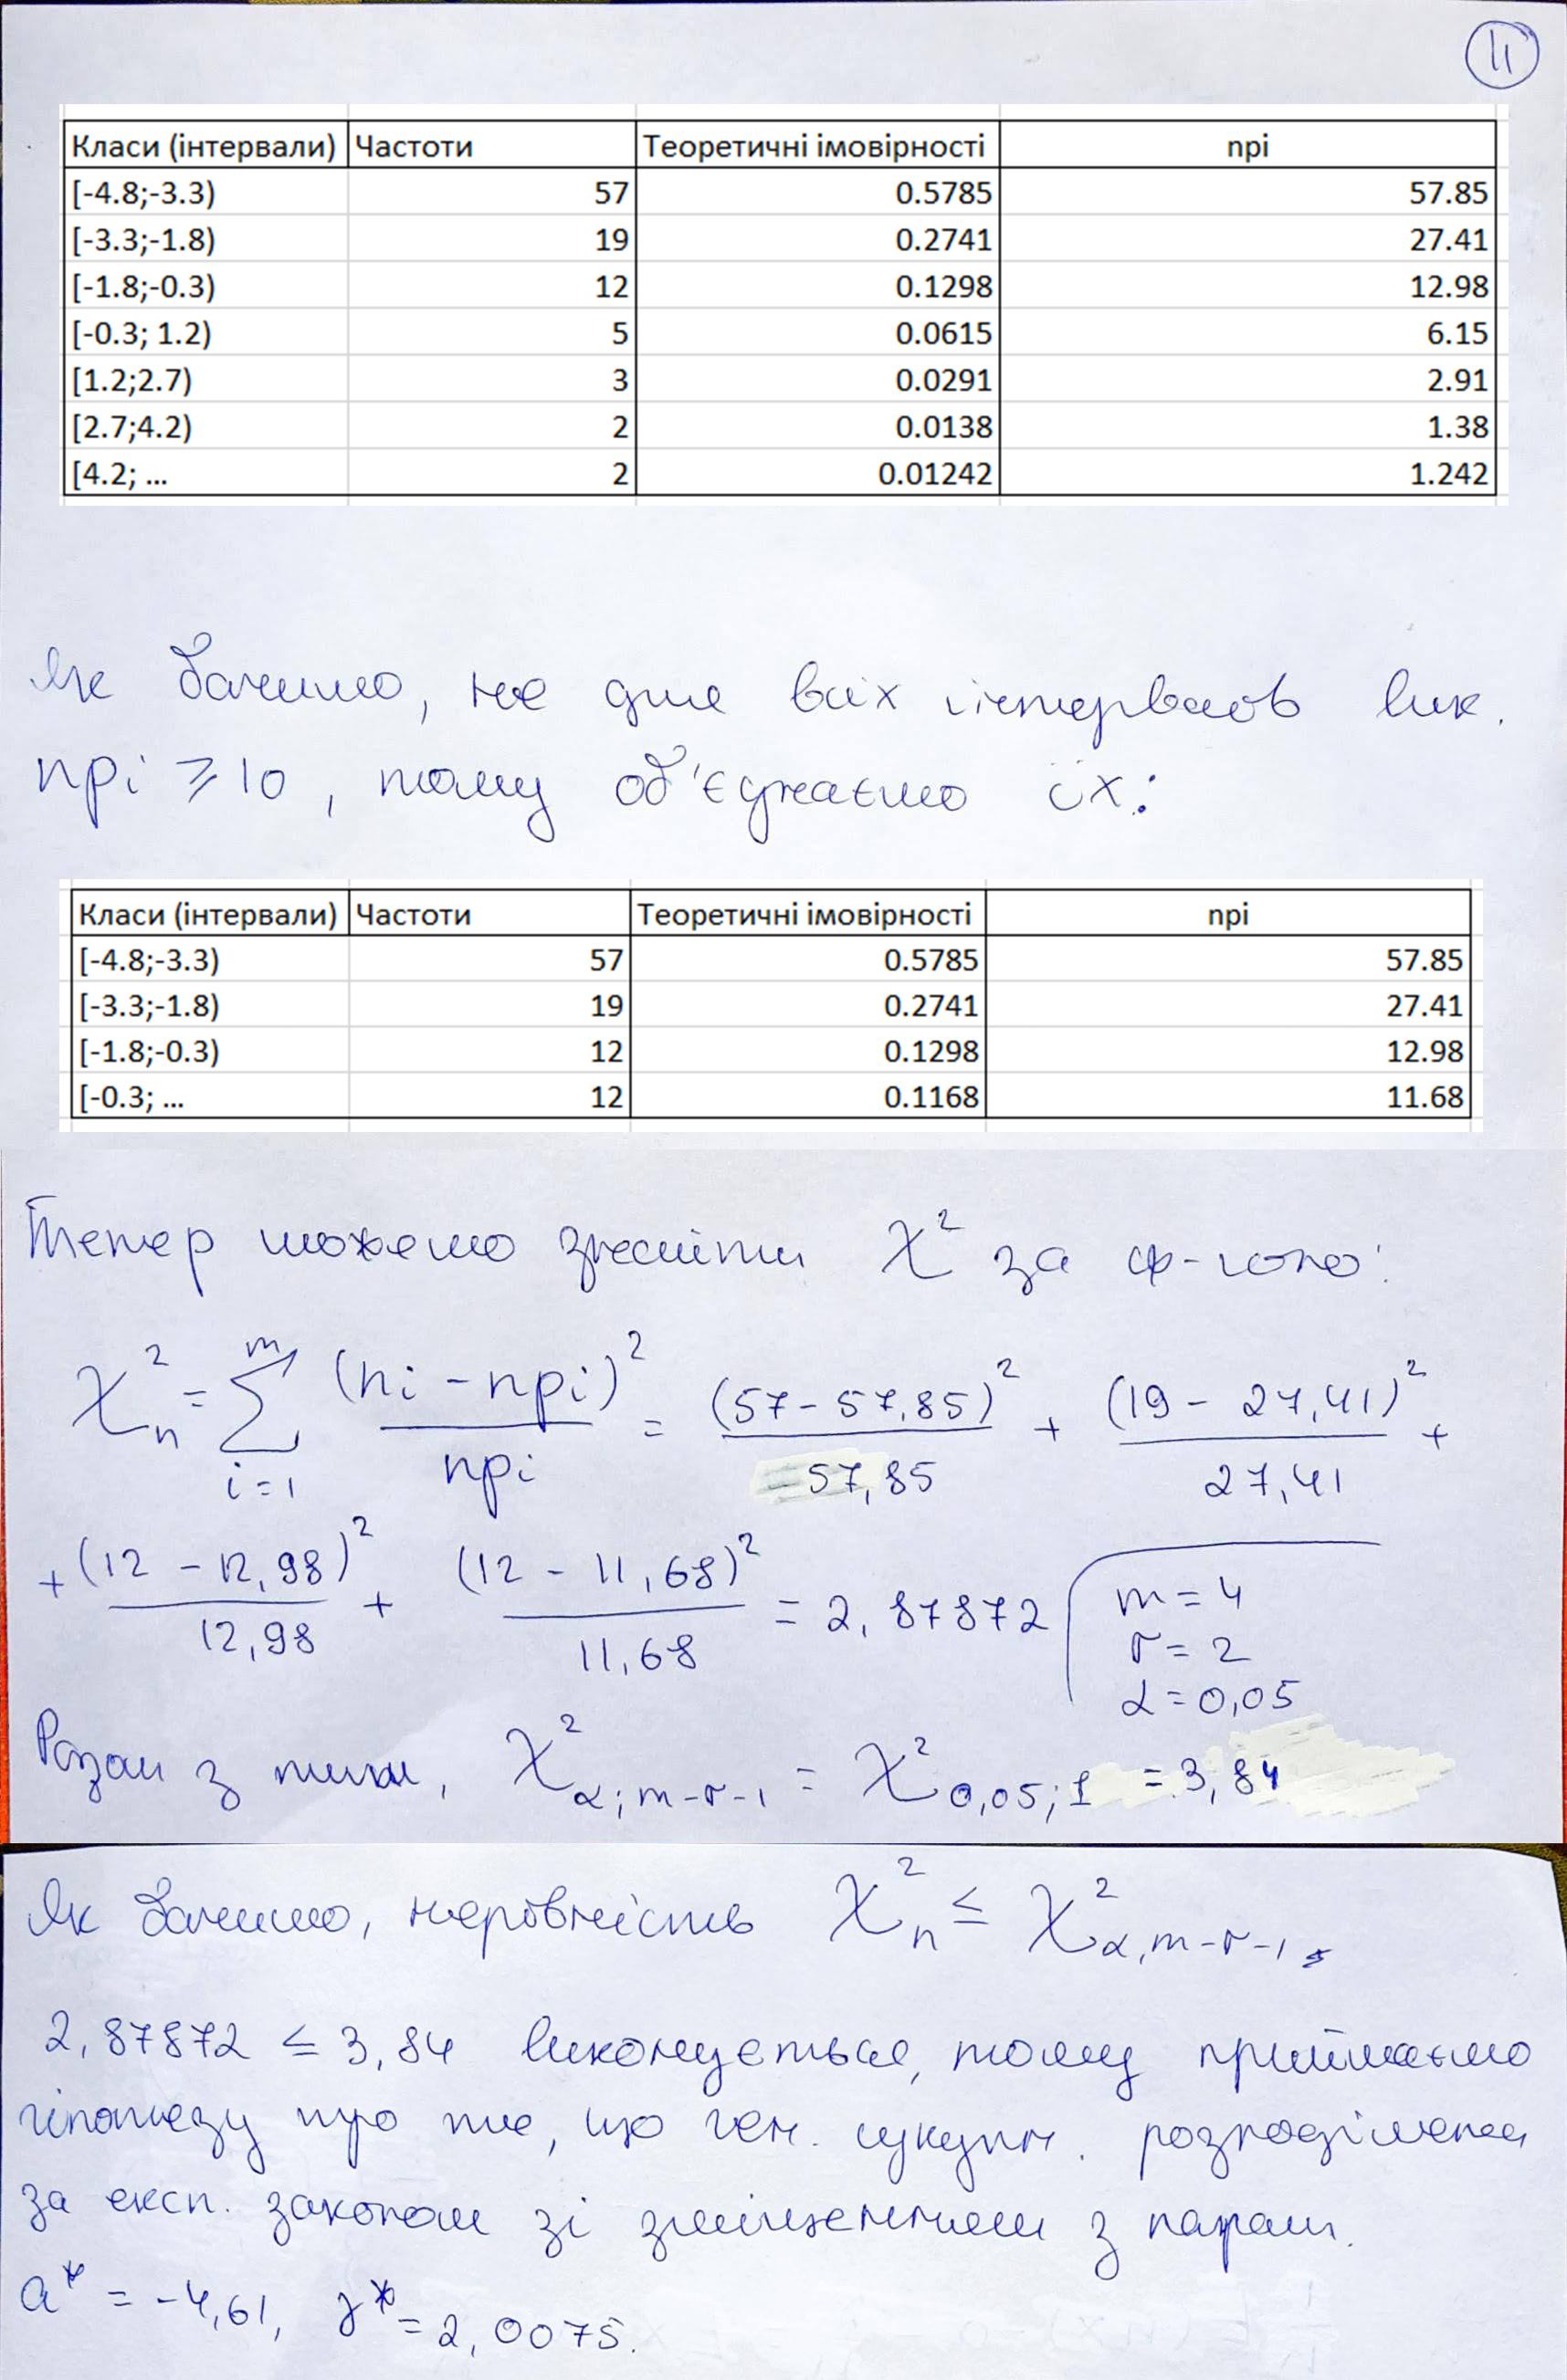 11
Класи (інтервали) Частоти Теоретичні імовірності npi
[-4.8;-3.3) 57 0.5785 57.85
[-3.3;-1.8) 19 0.2741 27.41
[-1.8;-0.3) 12 0.1298 12.98
[-0.3; 1.2) 5 0.0615 6.15
[1.2;2.7) 3 0.0291 2.91
[2.7;4.2) 2 0.0138 1.38
[4.2; ... 2 0.01242 1.242
Як бачимо, не для всіх інтервалів вик.
npi ⩾ 10, тому об'єднаємо їх:
Класи (інтервали) Частоти Теоретичні імовірності npi
[-4.8;-3.3) 57 0.5785 57.85
[-3.3;-1.8) 19 0.2741 27.41
[-1.8;-0.3) 12 0.1298 12.98
[-0.3; ... 12 0.1168 11.68
Тепер можемо знайти χ² за ф-лою:
χ²n = Σ i=1 m (ni - npi)² / npi = (57 - 57,85)² / 57,85 + (19 - 27,41)² / 27,41 +
+ (12 - 12,98)² / 12,98 + (12 - 11,68)² / 11,68 = 2,87872
m = 4
r = 2
α = 0,05
Разом з тим, χ²α;m-r-1 = χ²0,05;1 = 3,84
Як бачимо, нерівність χ²n ≤ χ²α,m-r-1,
2,87872 ≤ 3,84 виконується, тому приймаємо
гіпотезу про те, що ген. сукупн. розподілена
за експ. законом зі зміщенням з парам.
a* = -4,61, γ* = 2,0075.